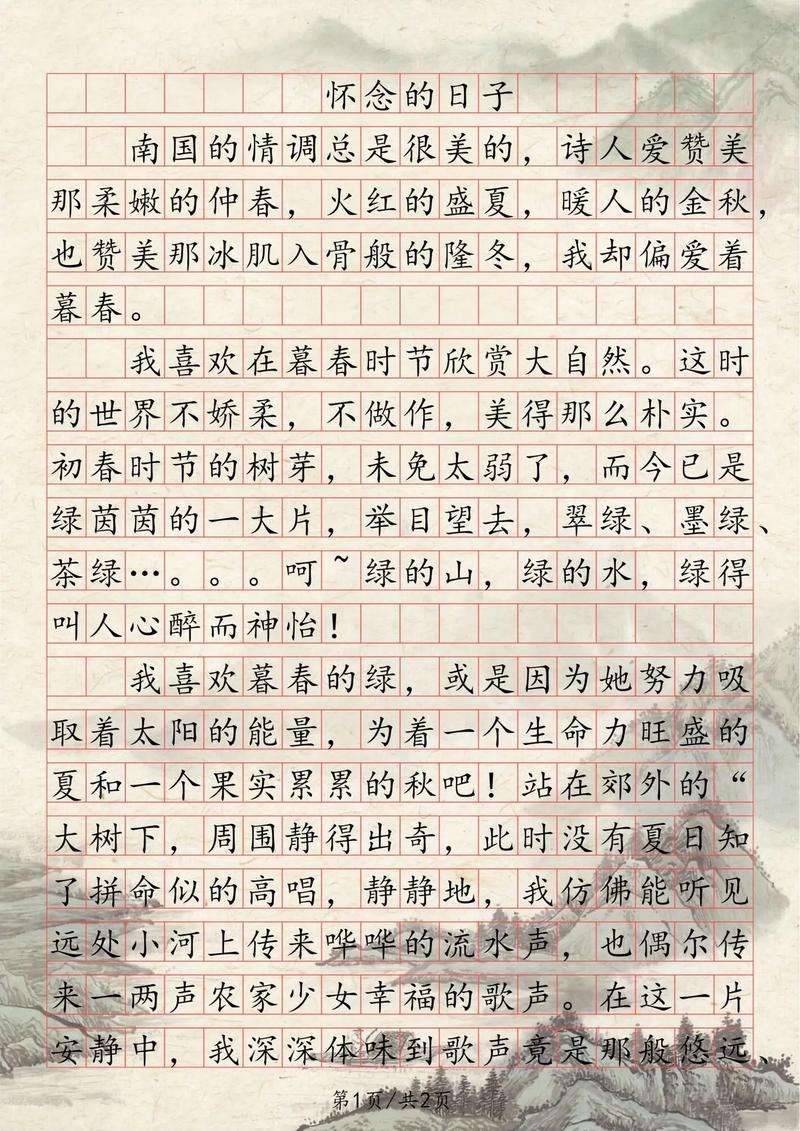 怀念的日子
南国的情调总是很美的，诗人爱赞美
那柔嫩的仲春，火红的盛夏，暖人的金秋，
也赞美那冰肌入骨般的隆冬，我却偏爱着
暮春。
我喜欢在暮春时节欣赏大自然。这时
的世界不娇柔，不做作，美得那么朴实。
初春时节的树芽，未免太弱了，而今已是
绿茵茵的一大片，举目望去，翠绿、墨绿、
茶绿…。。。呵~绿的山，绿的水，绿得
叫人心醉而神怡！
我喜欢暮春的绿，或是因为她努力吸
取着太阳的能量，为着一个生命力旺盛的
夏和一个果实累累的秋吧！站在郊外的“
大树下，周围静得出奇，此时没有夏日知
了拼命似的高唱，静静地，我仿佛能听见
远处小河上传来哗哗的流水声，也偶尔传
来一两声农家少女幸福的歌声。在这一片
安静中，我深深体味到歌声竟是那般悠远、
第1页/共2页